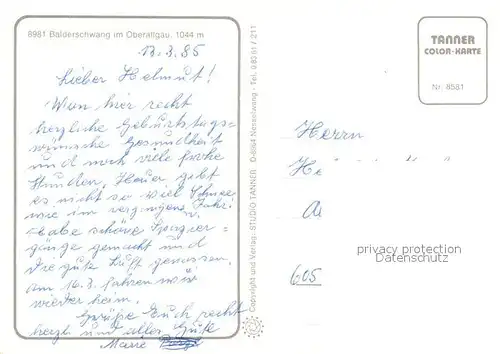 8981 Balderschwang im Oberallgäu, 1044 m
13.3.85
Lieber Helmut!
Wun hier recht
herzliche Geburtstags-
wünsche Gesundheit
und noch viele frohe
Stunden. Heuer gibt
es nicht so viel Schnee
wie im vergangenen Jahr.
Habe schöne Spazier-
gänge gemacht und
die gute Luft genossen.
am 16.3. fahren wir
wieder heim.
Grüße Euch recht
herzl. und alles Gute
Marie
Copyright und Verlag: STUDIO TANNER D-8964 Nesselwang - Tel. 08361 / 211
TANNER
COLOR-KARTE
Nr. 8581
Herrn
He
privacy protection
Datenschutz
605